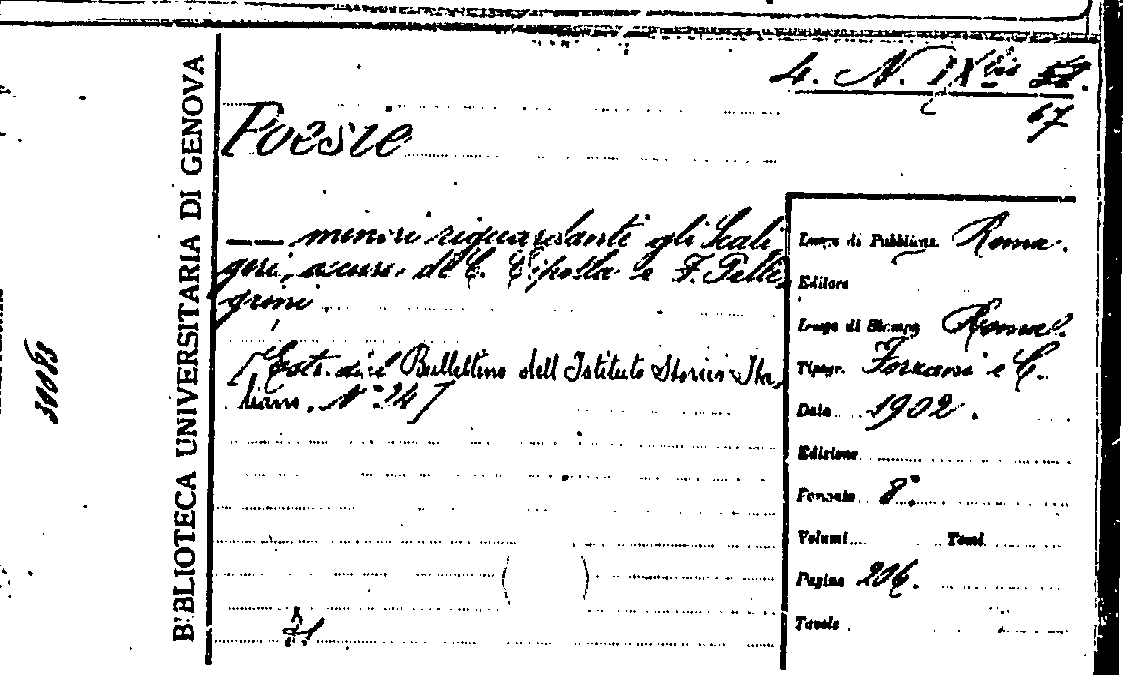 BIBLIOTECA UNIVERSITARIA DI GENOVA
4. N. IX bis
67
Poesie
— minori riguardanti gli Scali
geri, a cura di C. Cipolla e F. Pelle
grini
[Estr. dal Bullettino dell Istituto Storico Ita
liano. N° 24]
Luogo di Pubblicaz. Roma.
Editore
Luogo di Stampa Roma.
Tipogr. Forzani e C.
Data 1902.
Edizione
Formato 8°
Volumi Tomi
Pagine 206.
Tavole